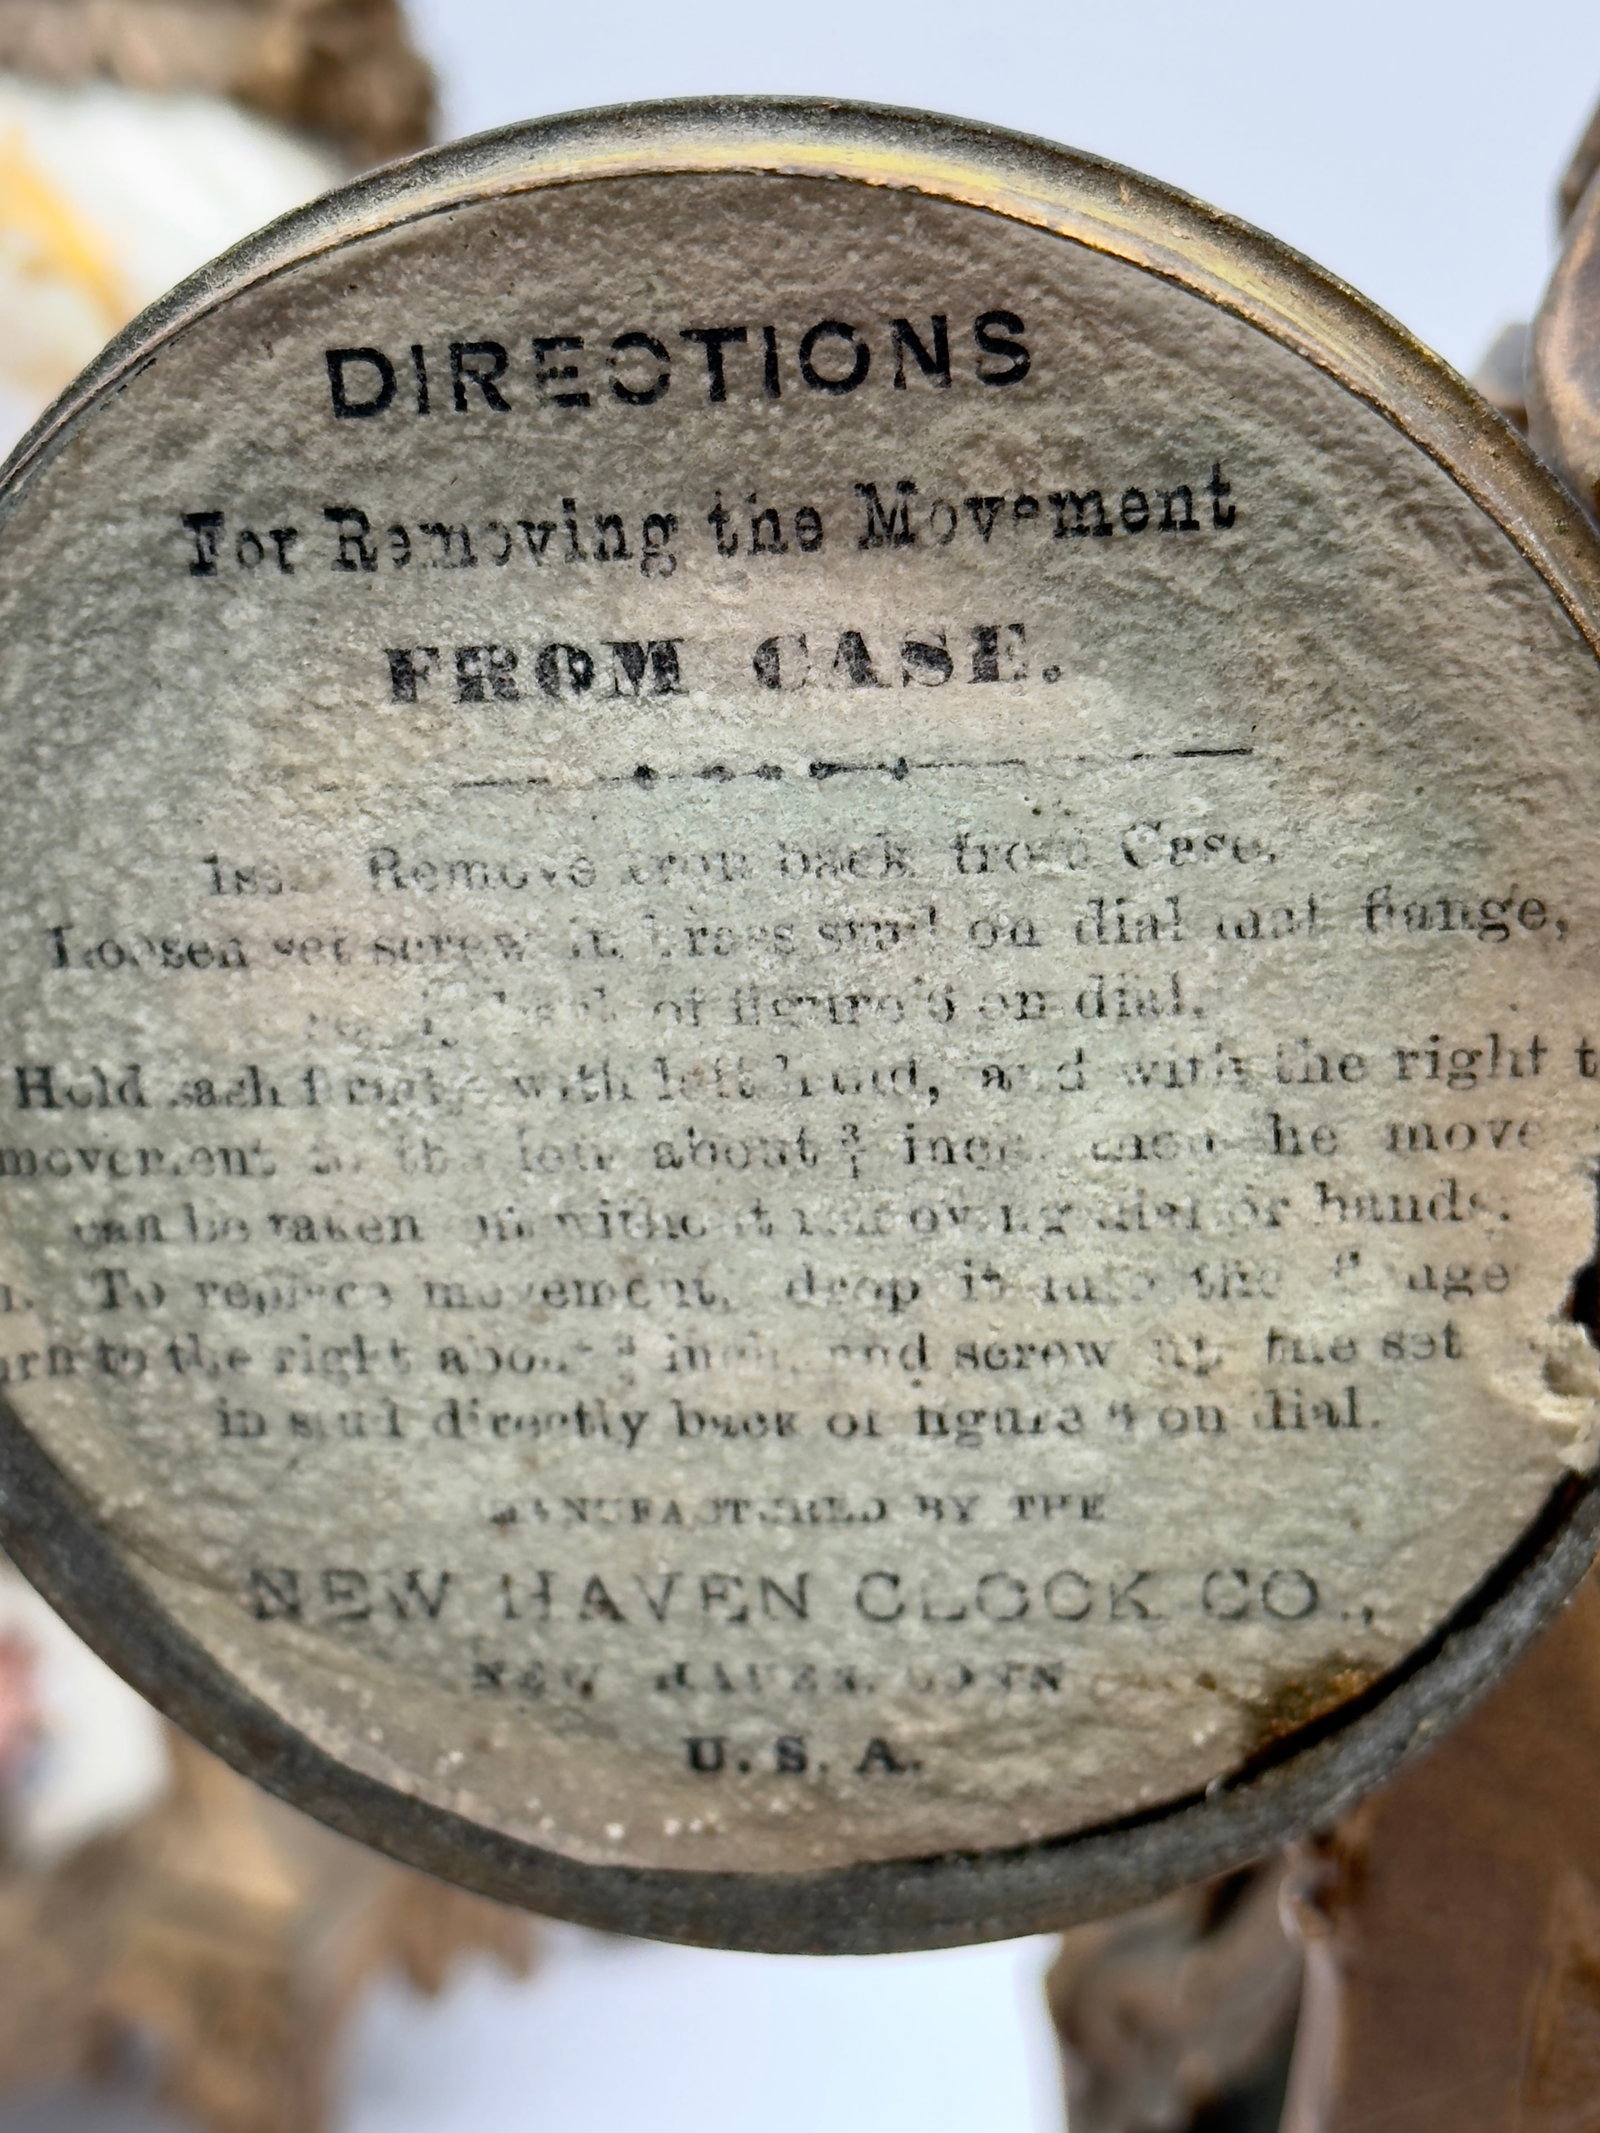 DIRECTIONS
For Removing the Movement
FROM CASE.
1st. Remove iron back from Case.
Loosen set screw in brass stud on dial flange,
back of figure 6 on dial.
Hold sash firmly with left hand, and with the right
movement to the left about ¾ inch, the move
can be taken out without removing dial or hands.
To replace movement, drop it into the flange
to the right about ¾ inch, and screw up the set
in stud directly back of figure 6 on dial.
MANUFACTURED BY THE
NEW HAVEN CLOCK CO.,
NEW HAVEN, CONN
U. S. A.